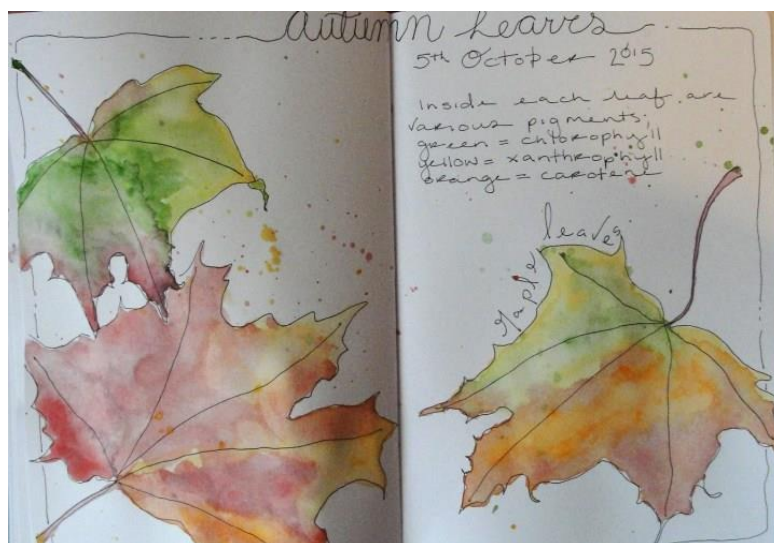 autumn leaves
5th October 2015
Inside each leaf are
various pigments;
green = chlorophyll
yellow = xanthrophyll
orange = carotene
Maple leaves